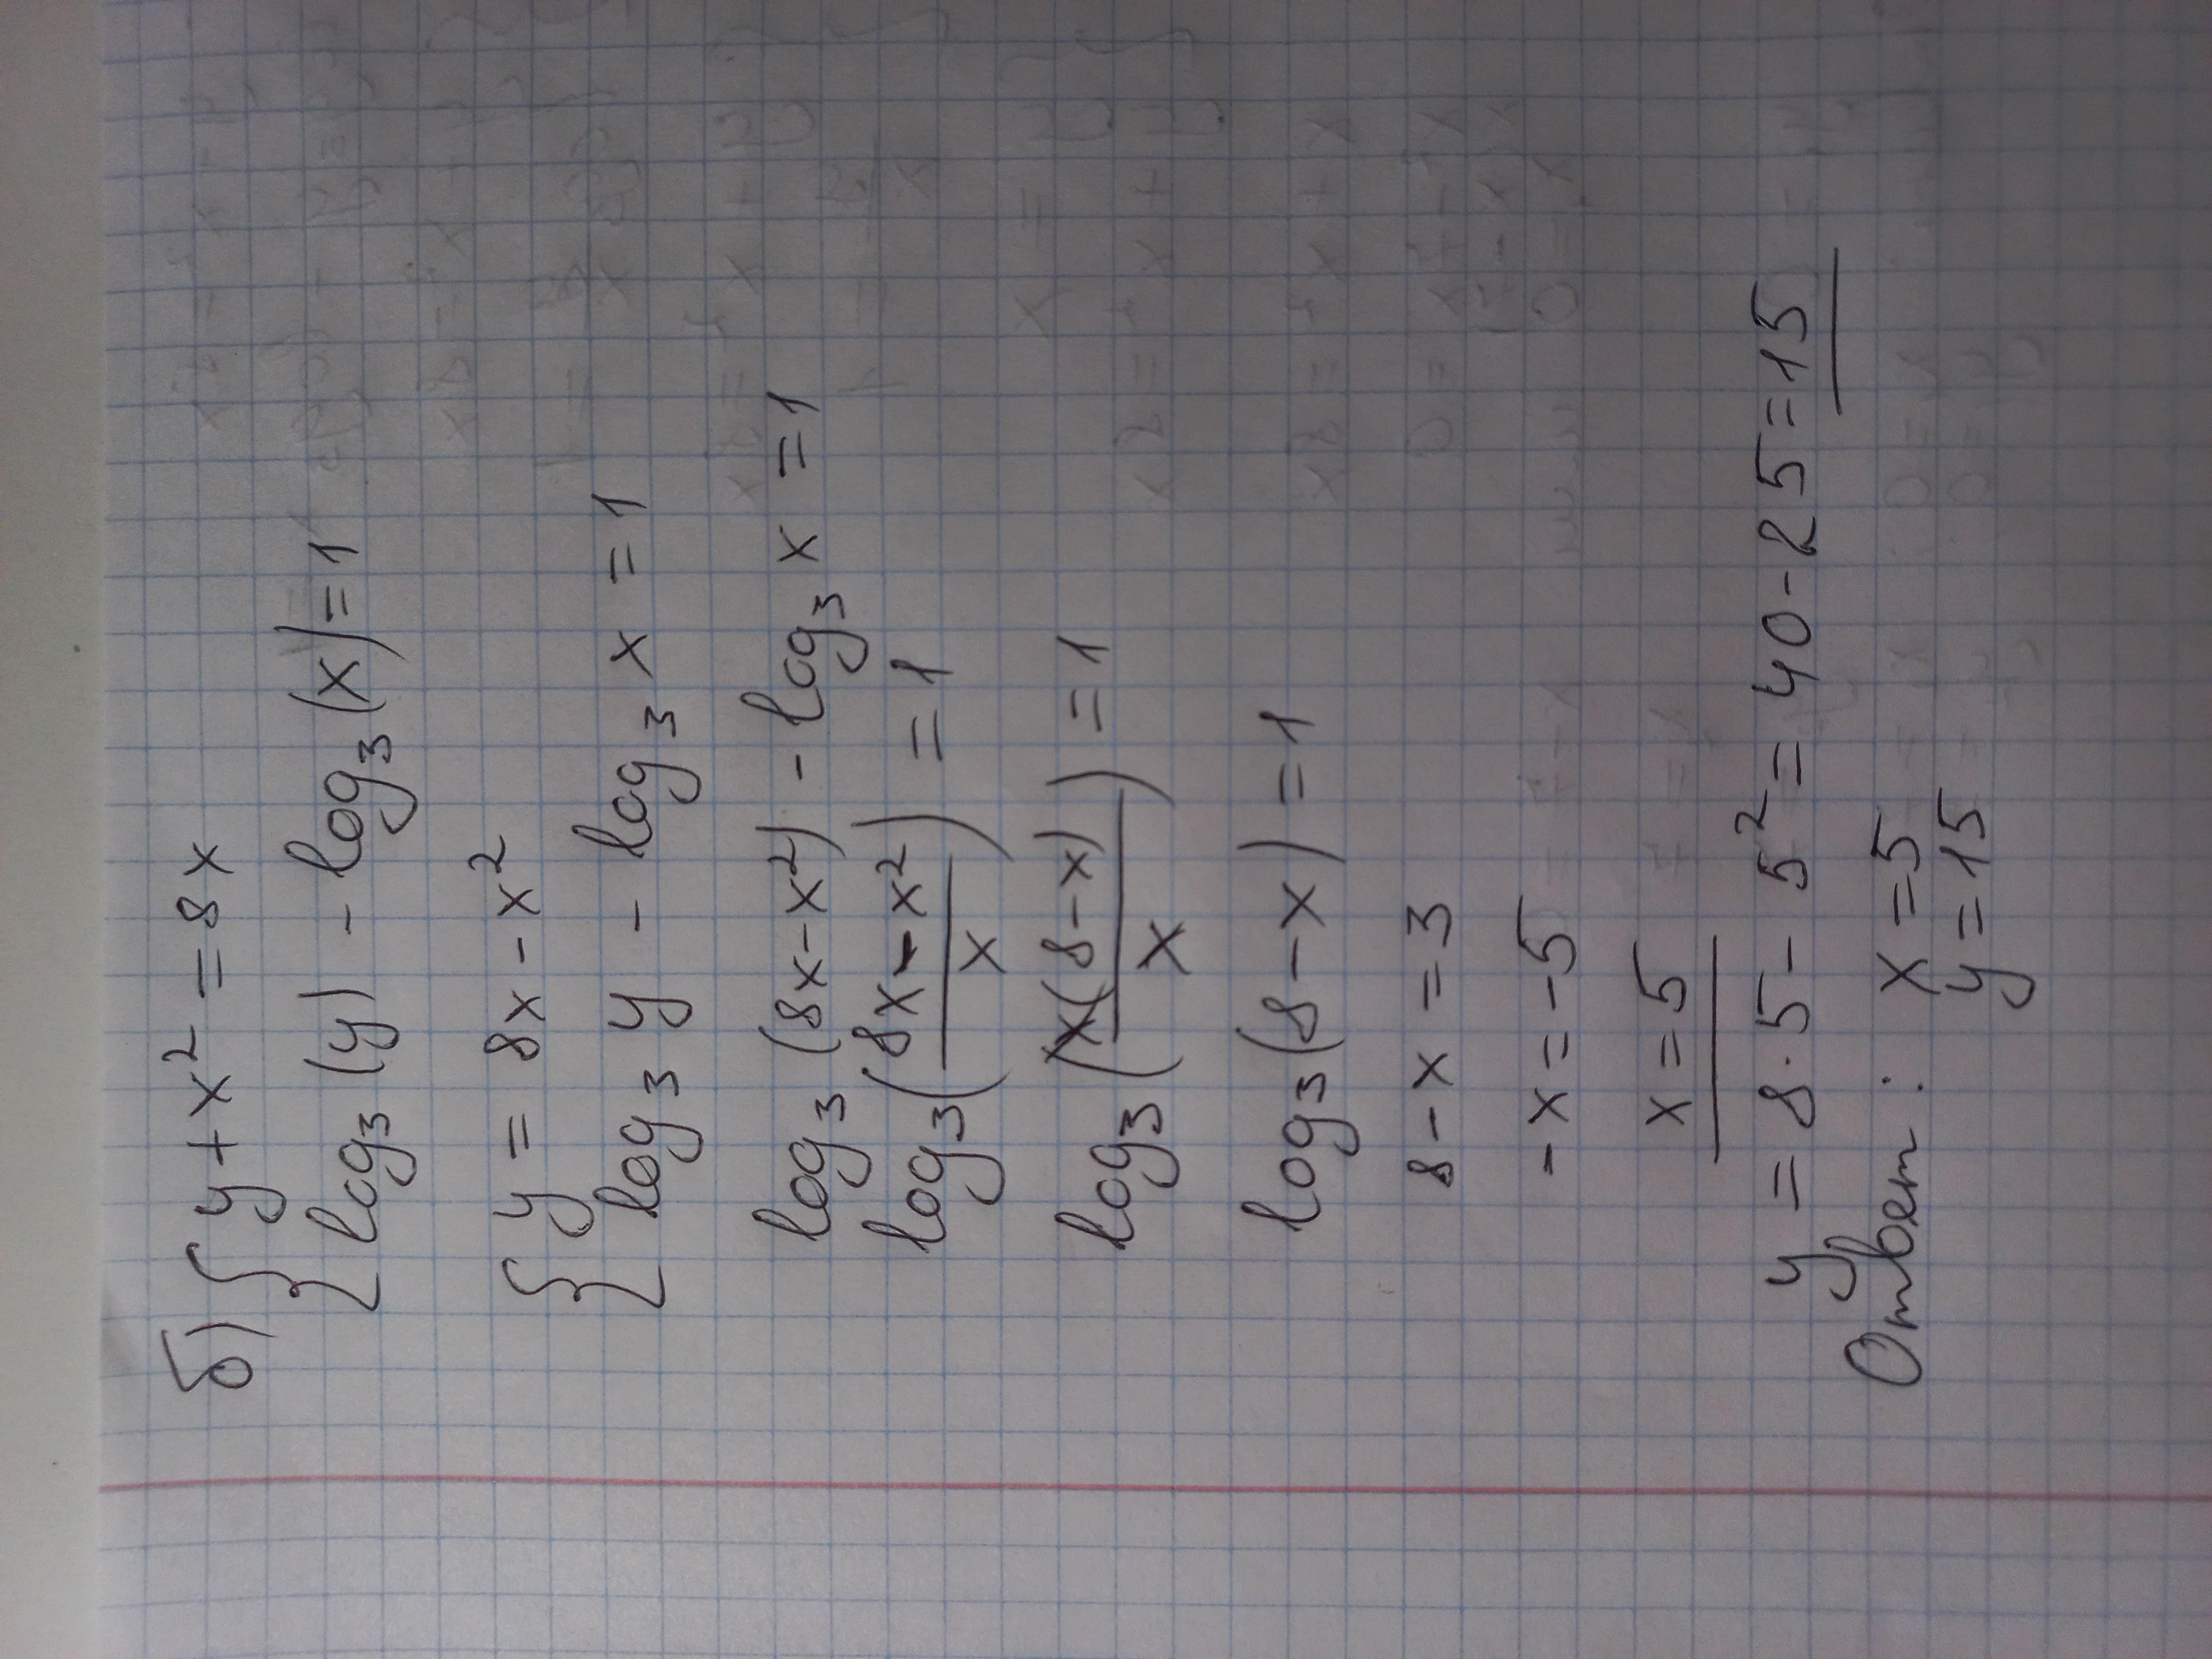 б) { y + x² = 8x
log₃(y) - log₃(x) = 1
{ y = 8x - x²
log₃ y - log₃ x = 1
log₃(8x - x²) - log₃ x = 1
log₃((8x - x²)/x) = 1
log₃(x(8 - x)/x) = 1
log₃(8 - x) = 1
8 - x = 3
-x = -5
x = 5
y = 8 · 5 - 5² = 40 - 25 = 15
Ответ: x = 5
y = 15